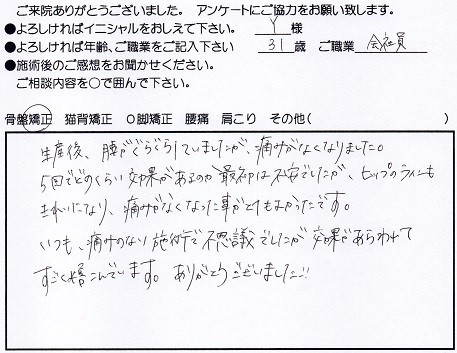 ご来院ありがとうございました。 アンケートにご協力をお願い致します。
●よろしければイニシャルをおしえて下さい。 Y 様
●よろしければ年齢、ご職業をご記入下さい 31 歳 ご職業 会社員
●施術後のご感想をお聞かせください。
ご相談内容を○で囲んで下さい。
骨盤矯正 猫背矯正 O脚矯正 腰痛 肩こり その他( )
生産後、腰がぐらぐらしていましたが、痛みがなくなりました。
5回でどのくらい効果があるのか最初は不安でしたが、ヒップのラインも
きれいになり、痛みがなくなった事がとてもよかったです。
いつも、痛みのない施術で不思議でしたが効果があらわれて
すごく喜こんでいます。 ありがとうございました!!